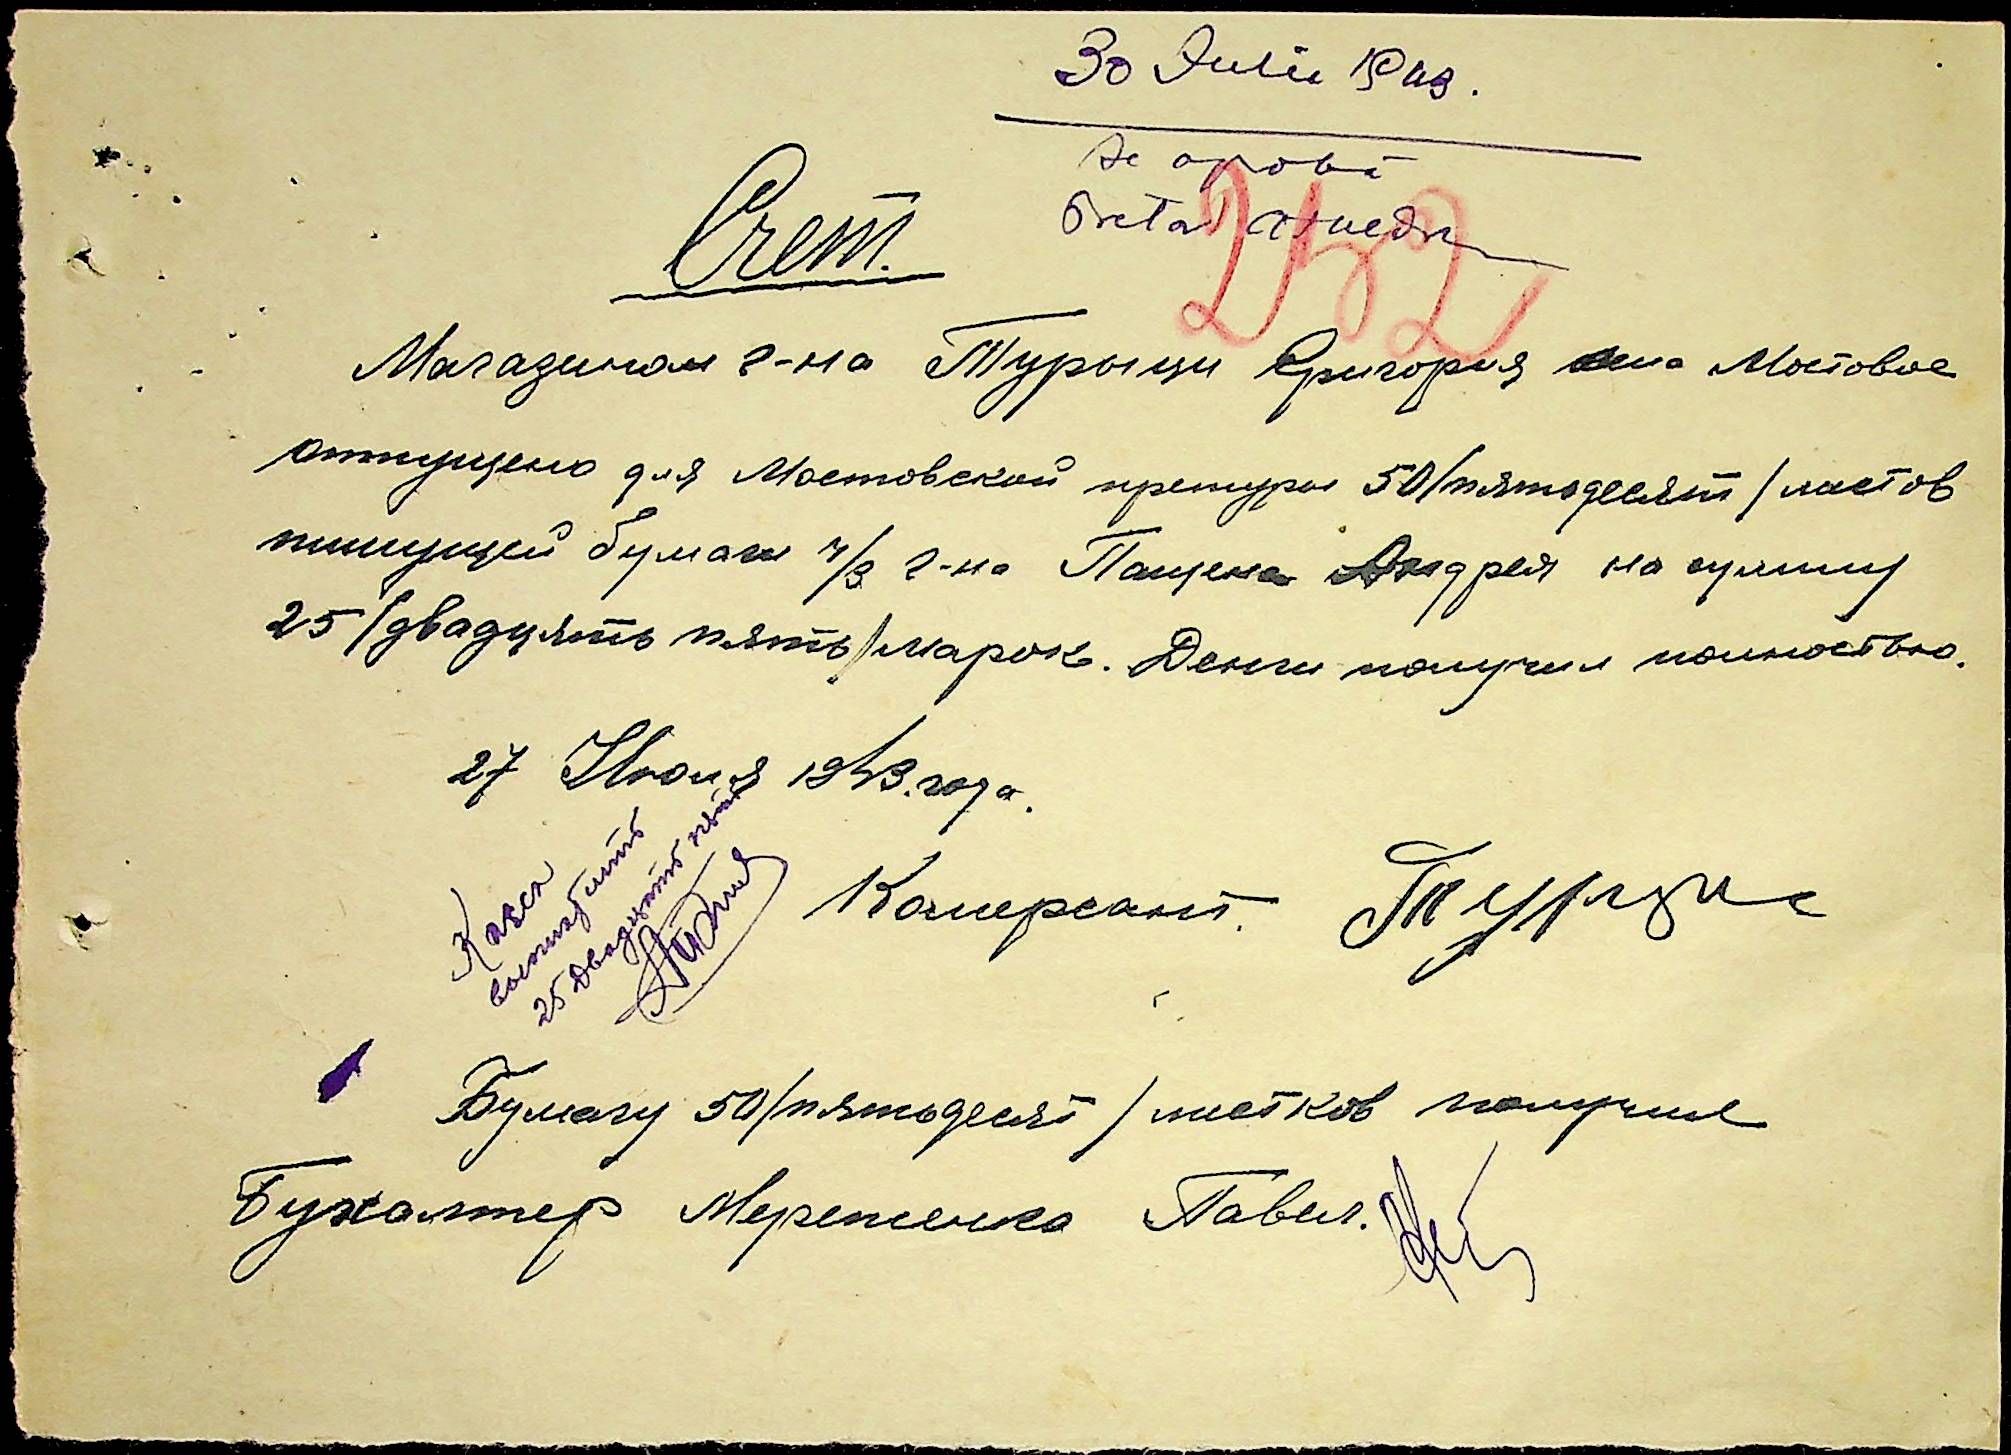 30 Iulie 1943.
Se aprobă
252
Счет.
Магазином г-на Турыци Григория Мостовое
отпущено для Мостовской претуры 50/пятьдесят/листов
пишущей бумаги ч/з г-на Пащенка Андрея на сумму
25/двадцять пять/марок. Деньги получил полностью.
27 Июля 1943. года.
Касса
выплатить
25 двадцать пять
Комерсант.
Бумагу 50/пятьдесят/листков получил
Бухалтер Мереженко Павел.